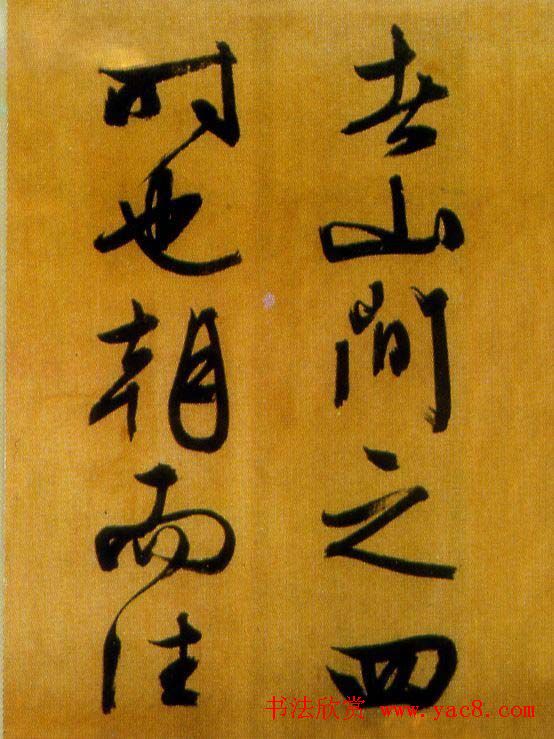 者山间之四
时也朝而往
书法欣赏 www.yac8.com